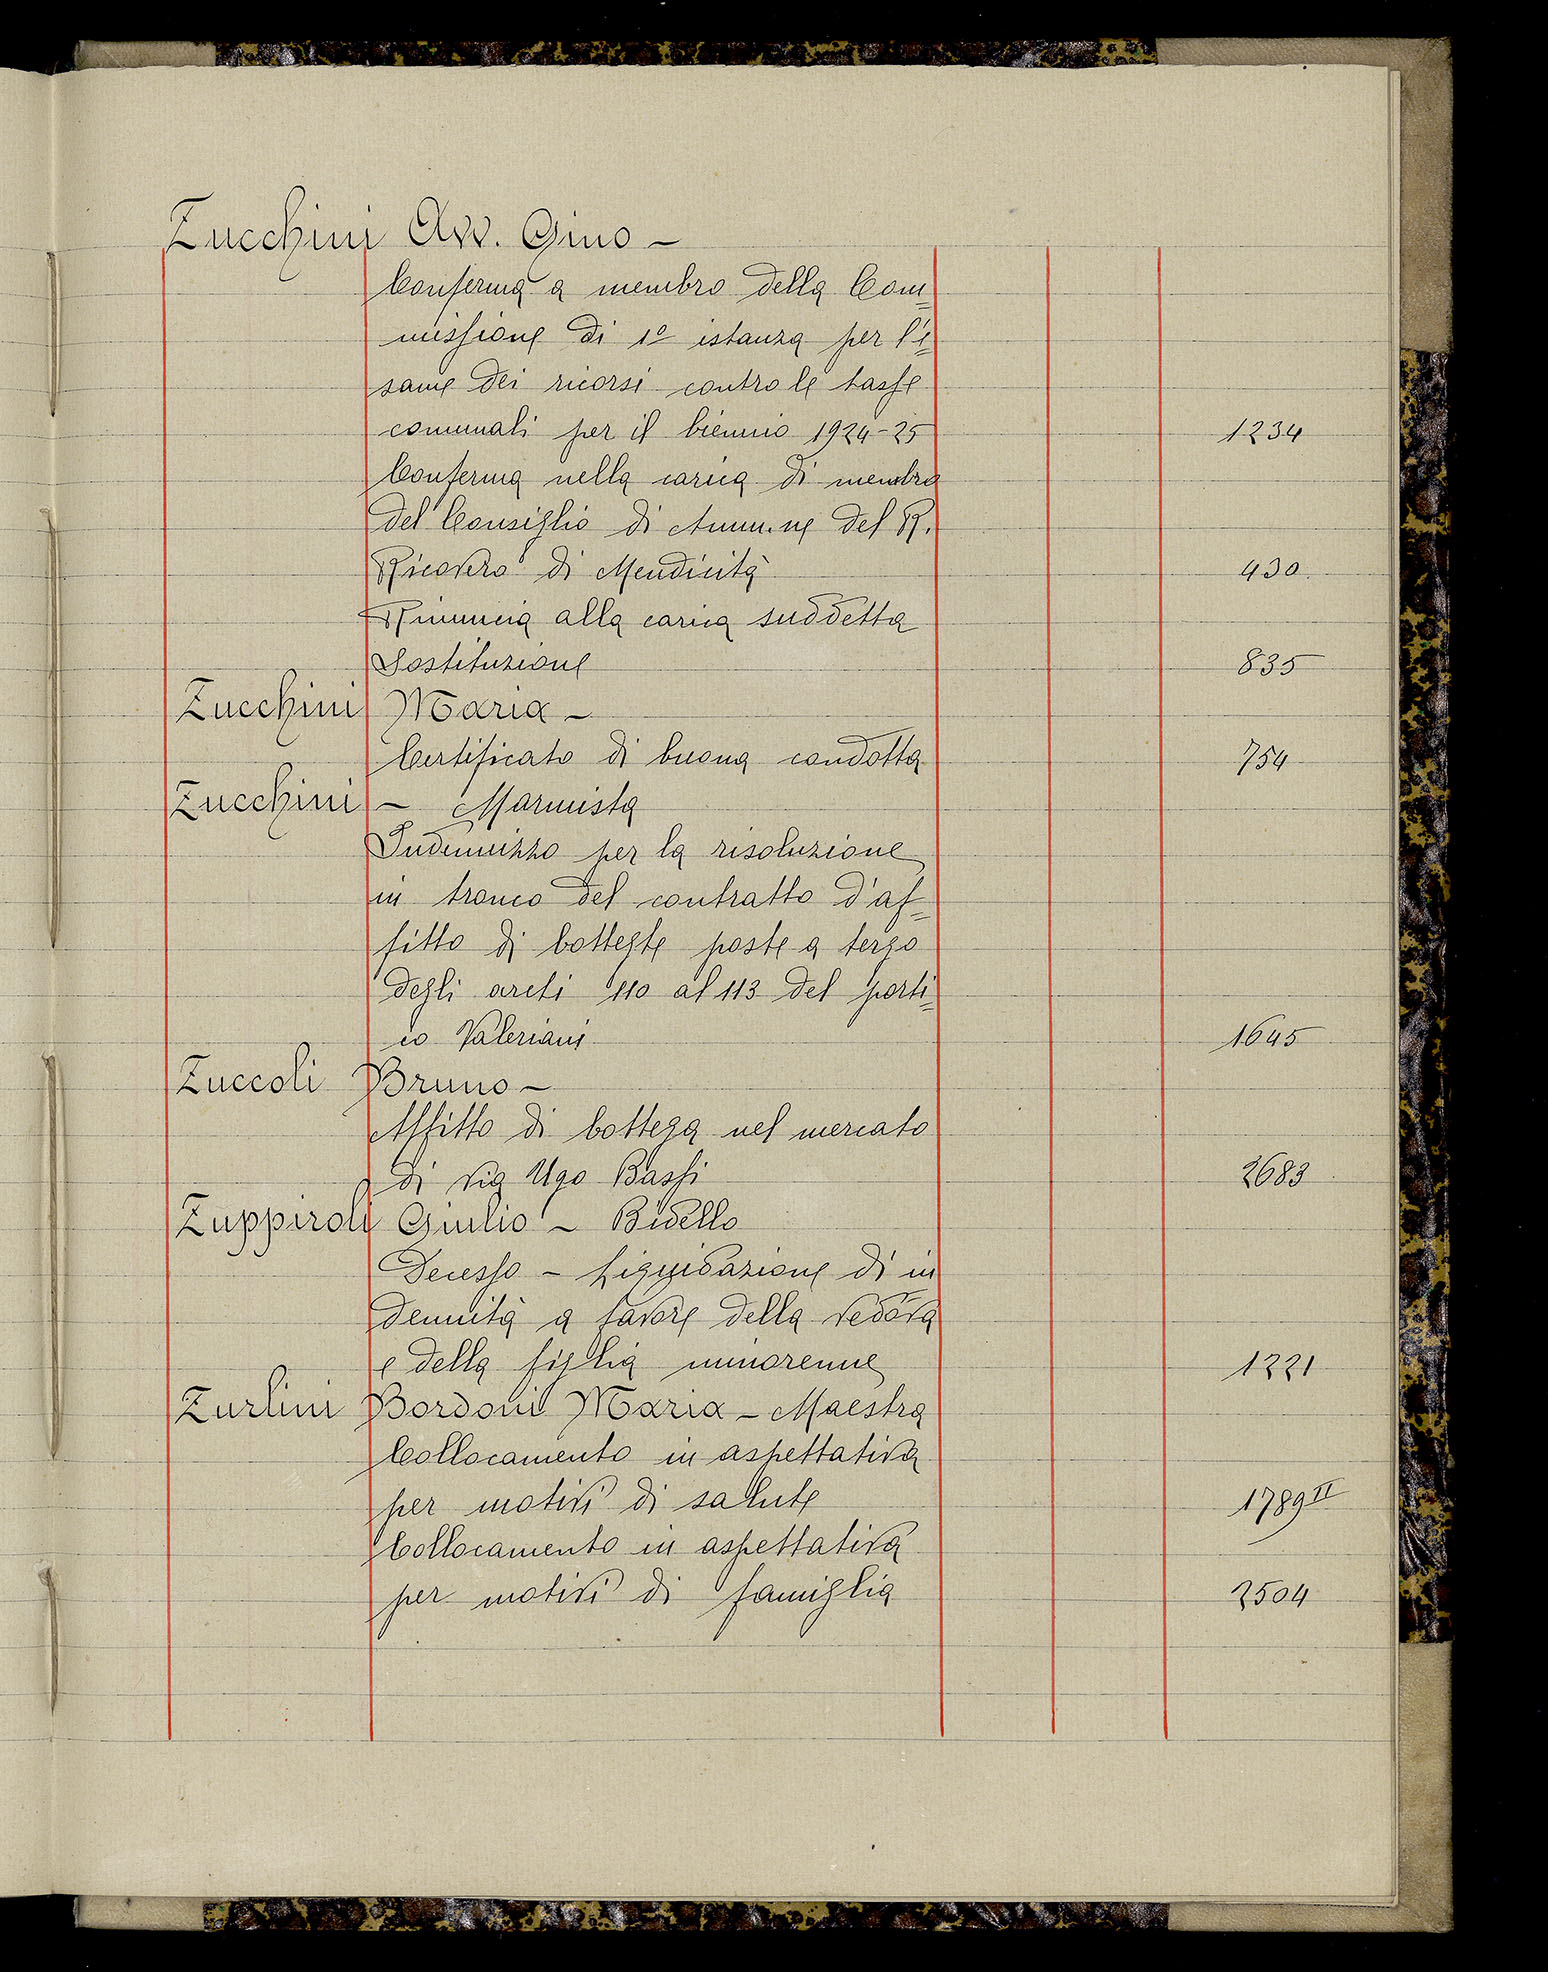 Zucchini Avv. Gino –
Conferma a membro della Com=
missione di 1º istanza per l'e=
same dei ricorsi contro le tasse
comunali per il biennio 1924-25 1234
Conferma nella carica di membro
del Consiglio di Amm.ne del R.
Ricovero di Mendicità 430.
Rinuncia alla carica suddetta
Sostituzione 835
Zucchini Maria –
Certificato di buona condotta 754
Zucchini – Marmista
Indennizzo per la risoluzione
in tronco del contratto d'af=
fitto di botteghe poste a tergo
degli archi 110 al 113 del porti=
co Valeriani 1645
Zuccoli Bruno –
Affitto di bottega nel mercato
di via Ugo Bassi 2683
Zuppiroli Giulio – Bidello
Decesso – Liquidazione di in
dennità a favore della vedova
e della figlia minorenne 1221
Zurlini Bordoni Maria – Maestra
Collocamento in aspettativa
per motivi di salute 1789 II
Collocamento in aspettativa
per motivi di famiglia 2504